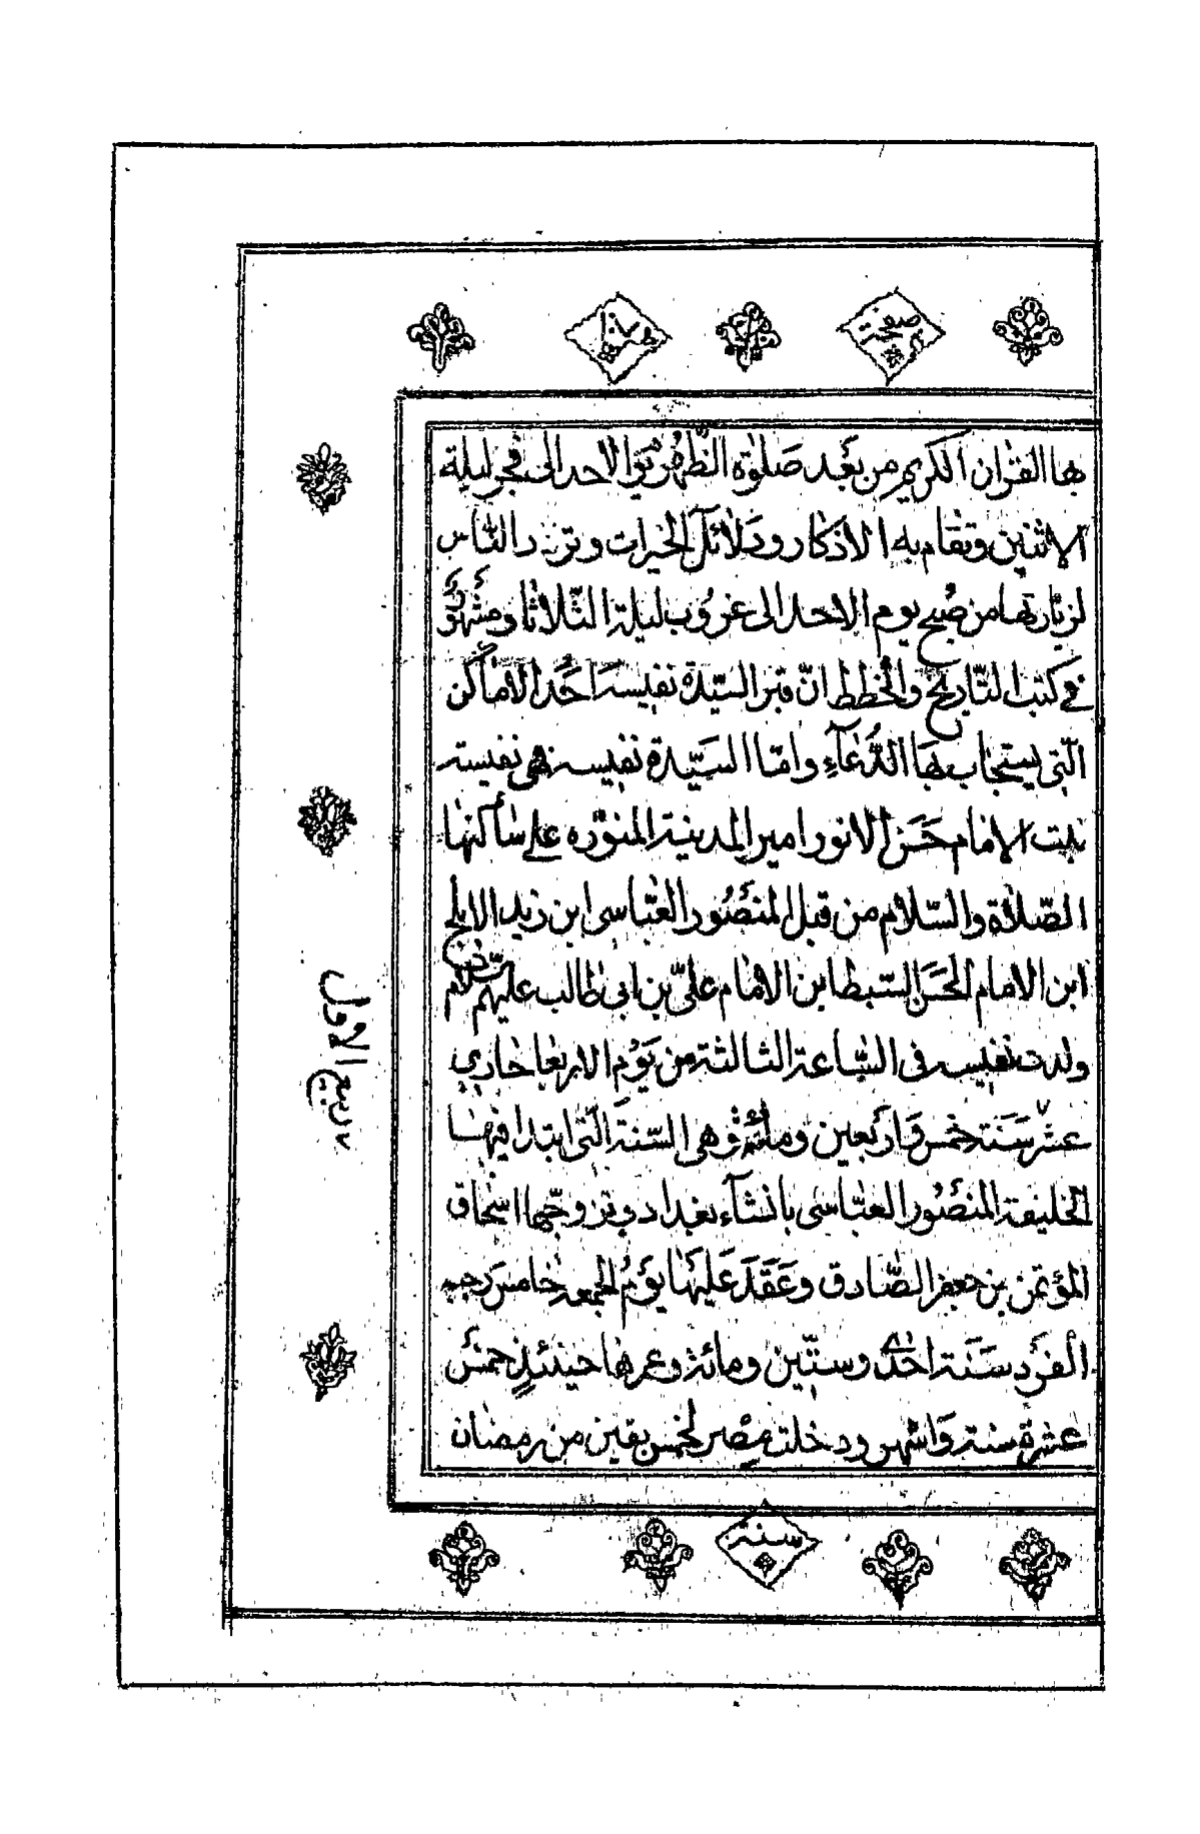 صفحة
هذا
بها القرآن الكريم من بَعْد صَلوٰة الظّهْر يَوْم الاحد الى فجر ليلة
الاثنين وتقام به الاذكار ودَلآئل الخيرات وتزد النّاس
لزيّارتها من صُبح يوم الاحد الى غرُوب ليلة الثّلاثا ومشْهُورْ
فى كتب التّاريخ والخطط انّ قبر السّيّدة نفيسة اَحَد الاماكن
الّتى يستجاب بهَا الدُّعآء وامّا السّيّدة نفيسة فهى نفيسة
بنت الامام حَسَن الانور امير المدينة المنوّره على سٰاكنها
الصّلاة والسّلام من قبل المنصُور العبّاسى ابن زيد الابلج
ابن الامام الحَسَن السّبط ابن الامام علىّ بن ابى طالب عليهم السّلام
ولدت نفيسه فى السّاعة الثالثة من يَوْم الاربعا حادى
عشر سَنَة خمس وَاربَعين ومائة وهى السّنة الّتى ابتدا فيها
الخليفة المنصُور العبّاسى بانشآء بغداد وتزوّجها اسحاق
المؤتمن بن جعفر الصّادق وعَقَدَ عَليهَا يوْم الجمعه خامس رجب
الفرْد سَنَة احدى وستّين ومائة وعمرها حينئذٍ خمسْ
عشرة سنة وَاشهر ودخلت مصر لخمس بقين من رمضان
٧ ربيع الاول
سنة